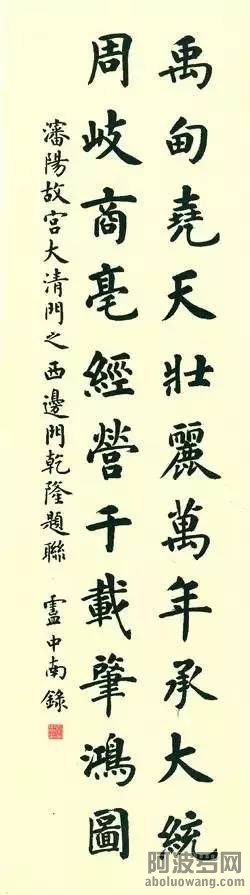 禹甸堯天壯麗萬年承大統
周岐商亳經營千載肇鴻圖
瀋陽故宮大清門之西邊門乾隆題聯 盧中南錄
阿波罗网
aboluowang.com